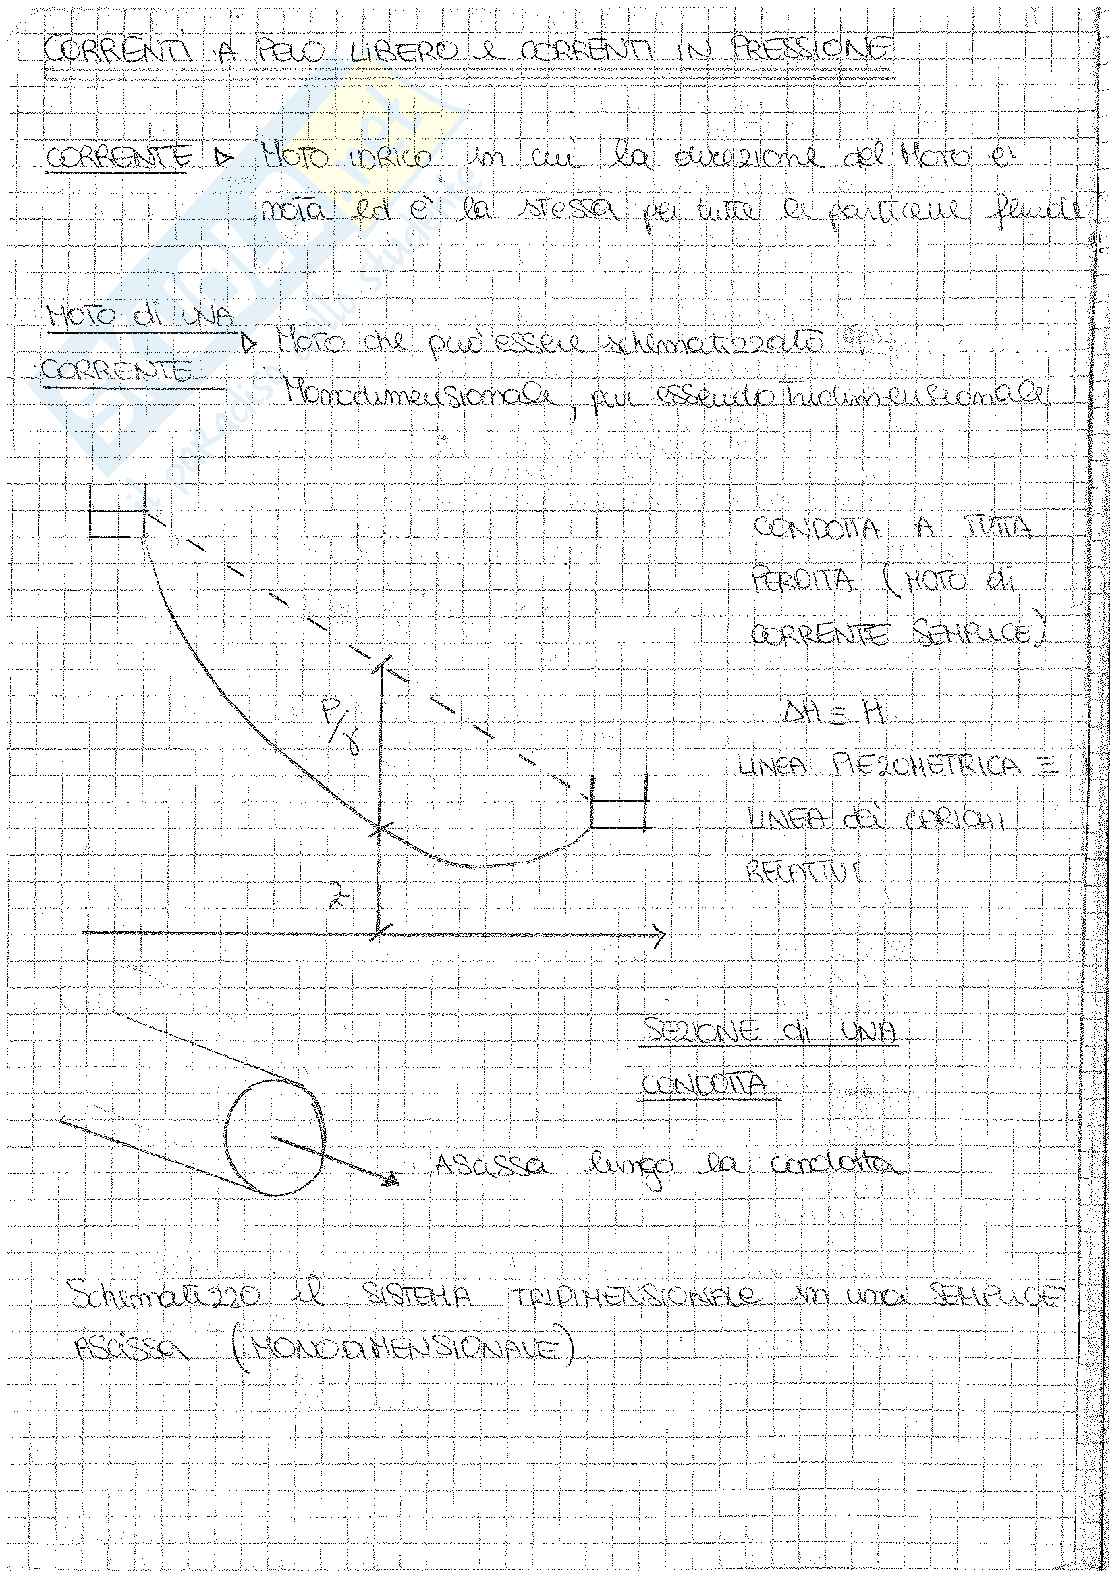 CORRENTI A PELO LIBERO e CORRENTI IN PRESSIONE
CORRENTE ▷ MOTO IDRICO in cui la direzione del MOTO è
nota ed è la STESSA per tutte le particelle fluide
MOTO di UNA
CORRENTE ▷ MOTO che può essere schematizzato
Monodimensionale, pur essendo Tridimensionale
CONDOTTA A TUTTA
PERDITA (MOTO di
CORRENTE SEMPLICE)
P/γ
ΔH ≡ H
LINEA PIEZOMETRICA ≡
LINEA dei CARICHI
RELATIVI
z
SEZIONE di UNA
CONDOTTA
Ascissa lungo la condotta
Schematizzo il SISTEMA TRIDIMENSIONALE in una SEMPLICE
Ascissa (MONODIMENSIONALE)